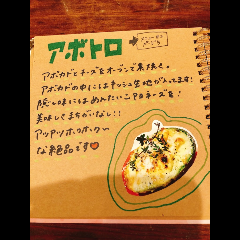 アボトロ
アボカドとチーズをオーブンで素焼く。
アボカドの中にはキッシュ生地が入ってます!
隠し味にはめんたいこマヨネーズを!
美味しくまちがいなし!!
アツアツホクホク
な絶品です♥